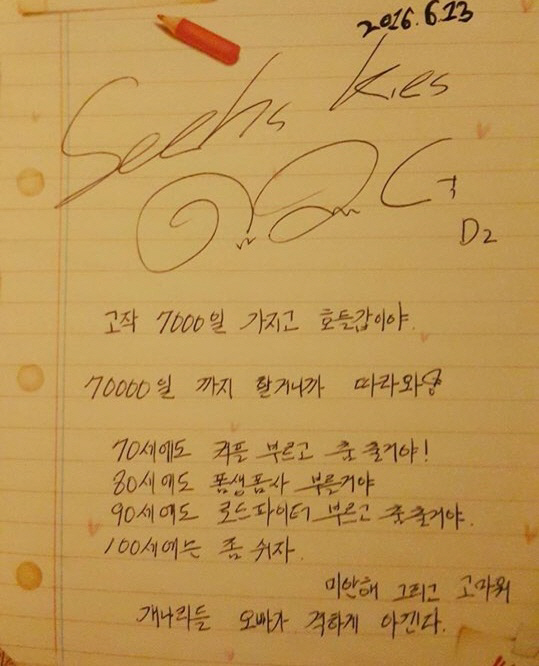 2016.6.13
Sechs Kies
D2
고작 7000일 가지고 호들갑이야.
70000일 까지 할거니까 따라와
70세에도 커플 부르고 춤 출거야!
80세에도 폼생폼사 부를거야
90세에도 로드파이터 부르고 춤출거야.
100세에는 좀 쉬자.
미안해 그리고 고마워
개나리들 오빠가 격하게 아낀다.